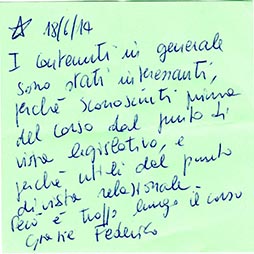 ☆ 18/6/14
I contenuti in generale
sono stati interessanti,
perché sconosciuti prima
del corso dal punto di
vista legislativo, e
perché utili dal punto
di vista relazionale
Però è troppo lungo il corso
Grazie Federico